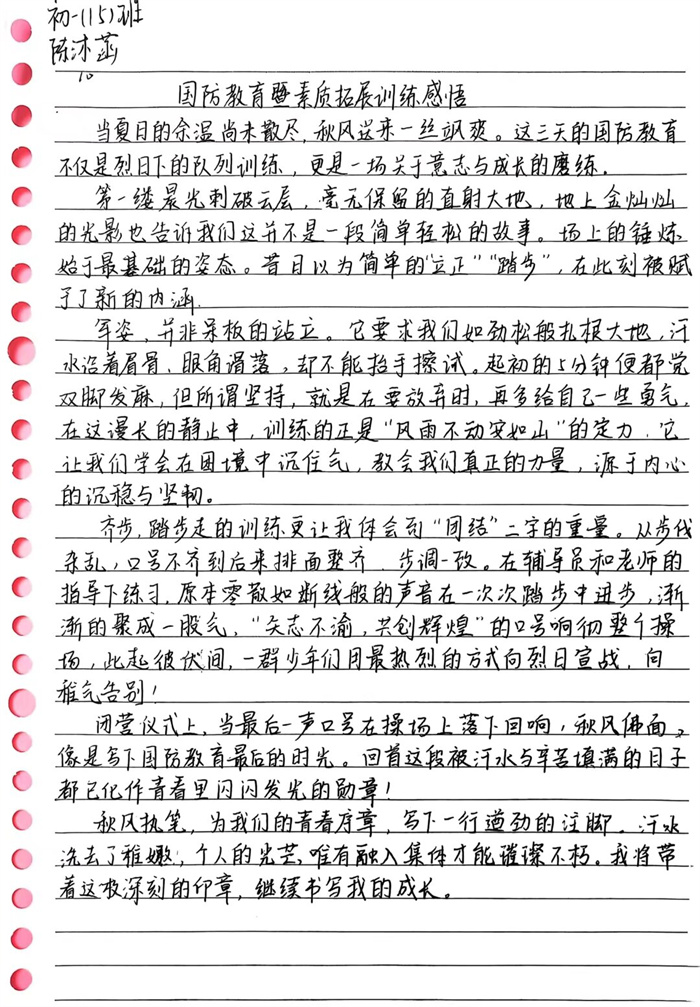 初一(15)班
陈沐菡
10
国防教育暨素质拓展训练感悟
当夏日的余温尚未散尽,秋风送来一丝飒爽。这三天的国防教育
不仅是烈日下的队列训练,更是一场关于意志与成长的磨练。
第一缕晨光刺破云层,毫无保留的直射大地,地上金灿灿
的光影也告诉我们这并不是一段简单轻松的故事。场上的锤炼
始于最基础的姿态。昔日以为简单的“立正”“踏步”,在此刻被赋
予了新的内涵.
军姿,并非呆板的站立。它要求我们如劲松般扎根大地,汗
水沿着眉骨、眼角滑落,却不能抬手擦试。起初的5分钟便都觉
双脚发麻,但所谓坚持,就是在要放弃时,再多给自己一些勇气.
在这漫长的静止中,训练的正是“风雨不动安如山”的定力.它
让我们学会在困境中沉住气,教会我们真正的力量,源于内心
的沉稳与坚韧。
齐步,踏步走的训练更让我体会到“团结”二字的重量。从步伐
杂乱,口号不齐到后来排面整齐.步调一致。在辅导员和老师的
指导下练习,原本零散如断线般的声音在一次次踏步中进步,渐
渐的聚成一股气,“矢志不渝,共创辉煌”的口号响彻整个操
场,此起彼伏间,一群少年们用最热烈的方式向烈日宣战,向
稚气告别!
闭营仪式上,当最后一声口号在操场上落下回响,秋风佛面,
像是写下国防教育最后的时光。回首这段被汗水与辛苦填满的日子
都已化作青春里闪闪发光的勋章!
秋风执笔,为我们的青春序章,写下一行遒劲的注脚.汗水
洗去了稚嫩,个人的光芒,唯有融入集体才能璀璨不朽。我将带
着这枚深刻的印章,继续书写我的成长。